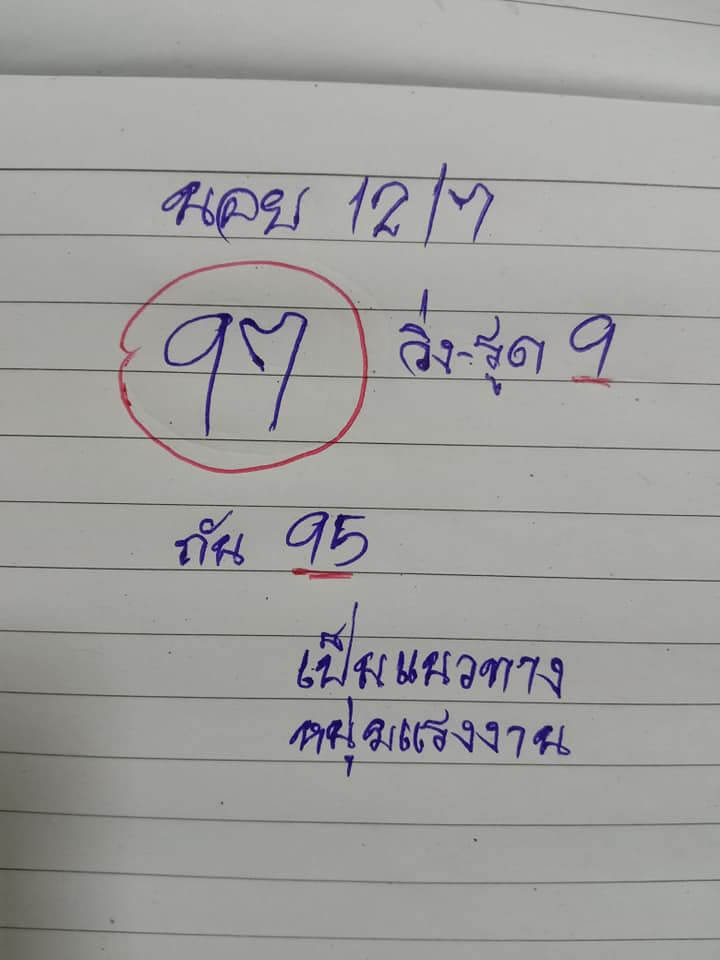 นอย 12/7
97 วิ่ง-รูด 9
กัน 95
เป็นแนวทาง
หนุ่มแรงงาน